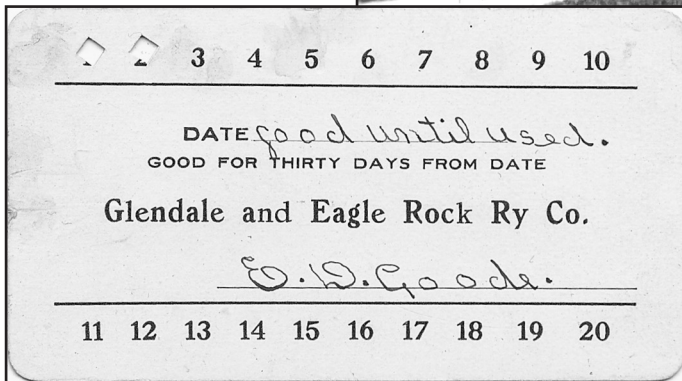 3 4 5 6 7 8 9 10
DATE good until used.
GOOD FOR THIRTY DAYS FROM DATE
Glendale and Eagle Rock Ry Co.
E. D. Goode.
11 12 13 14 15 16 17 18 19 20